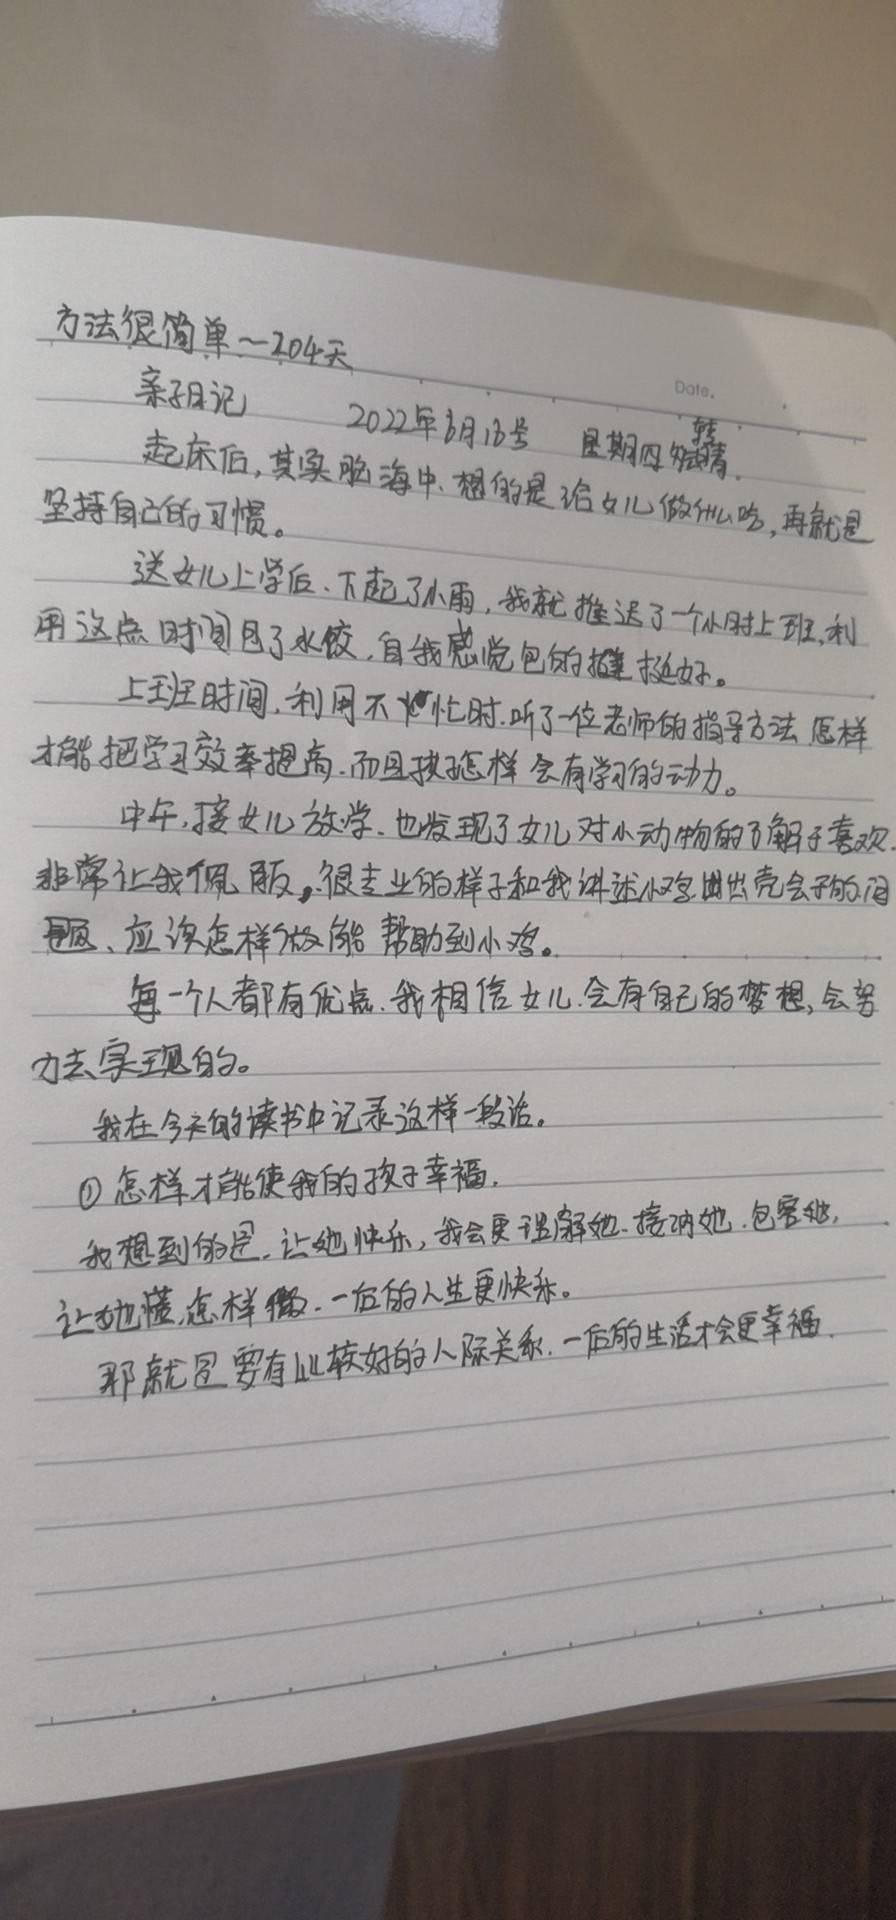 方法很简单～204天
Date.
亲子日记 2022年6月16号 星期四 转晴.
起床后,其实脑海中.想的是给女儿做什么吃,再就是
坚持自己的习惯。
送女儿上学后.下起了小雨,我就推迟了一个小时上班,利
用这点时间包了水饺,自我感觉包的挺好。
上班时间,利用不忙时.听了一位老师的指导方法怎样
才能把学习效率提高.而且孩子怎样会有学习的动力。
中午,接女儿放学.也发现了女儿对小动物的了解于喜欢.
非常让我佩服,很专业的样子和我讲述小鸡出壳会的问
题、应该怎样做能帮助到小鸡。
每一个人都有优点.我相信女儿.会有自己的梦想,会努
力去实现的。
我在今天的读书中记录这样一段话。
①怎样才能使我的孩子幸福.
我想到的是.让她快乐,我会更理解她.接纳她.包容她,
让她懂,怎样做.一后的人生更快乐。
那就是要有比较好的人际关系.一后的生活才会更幸福.